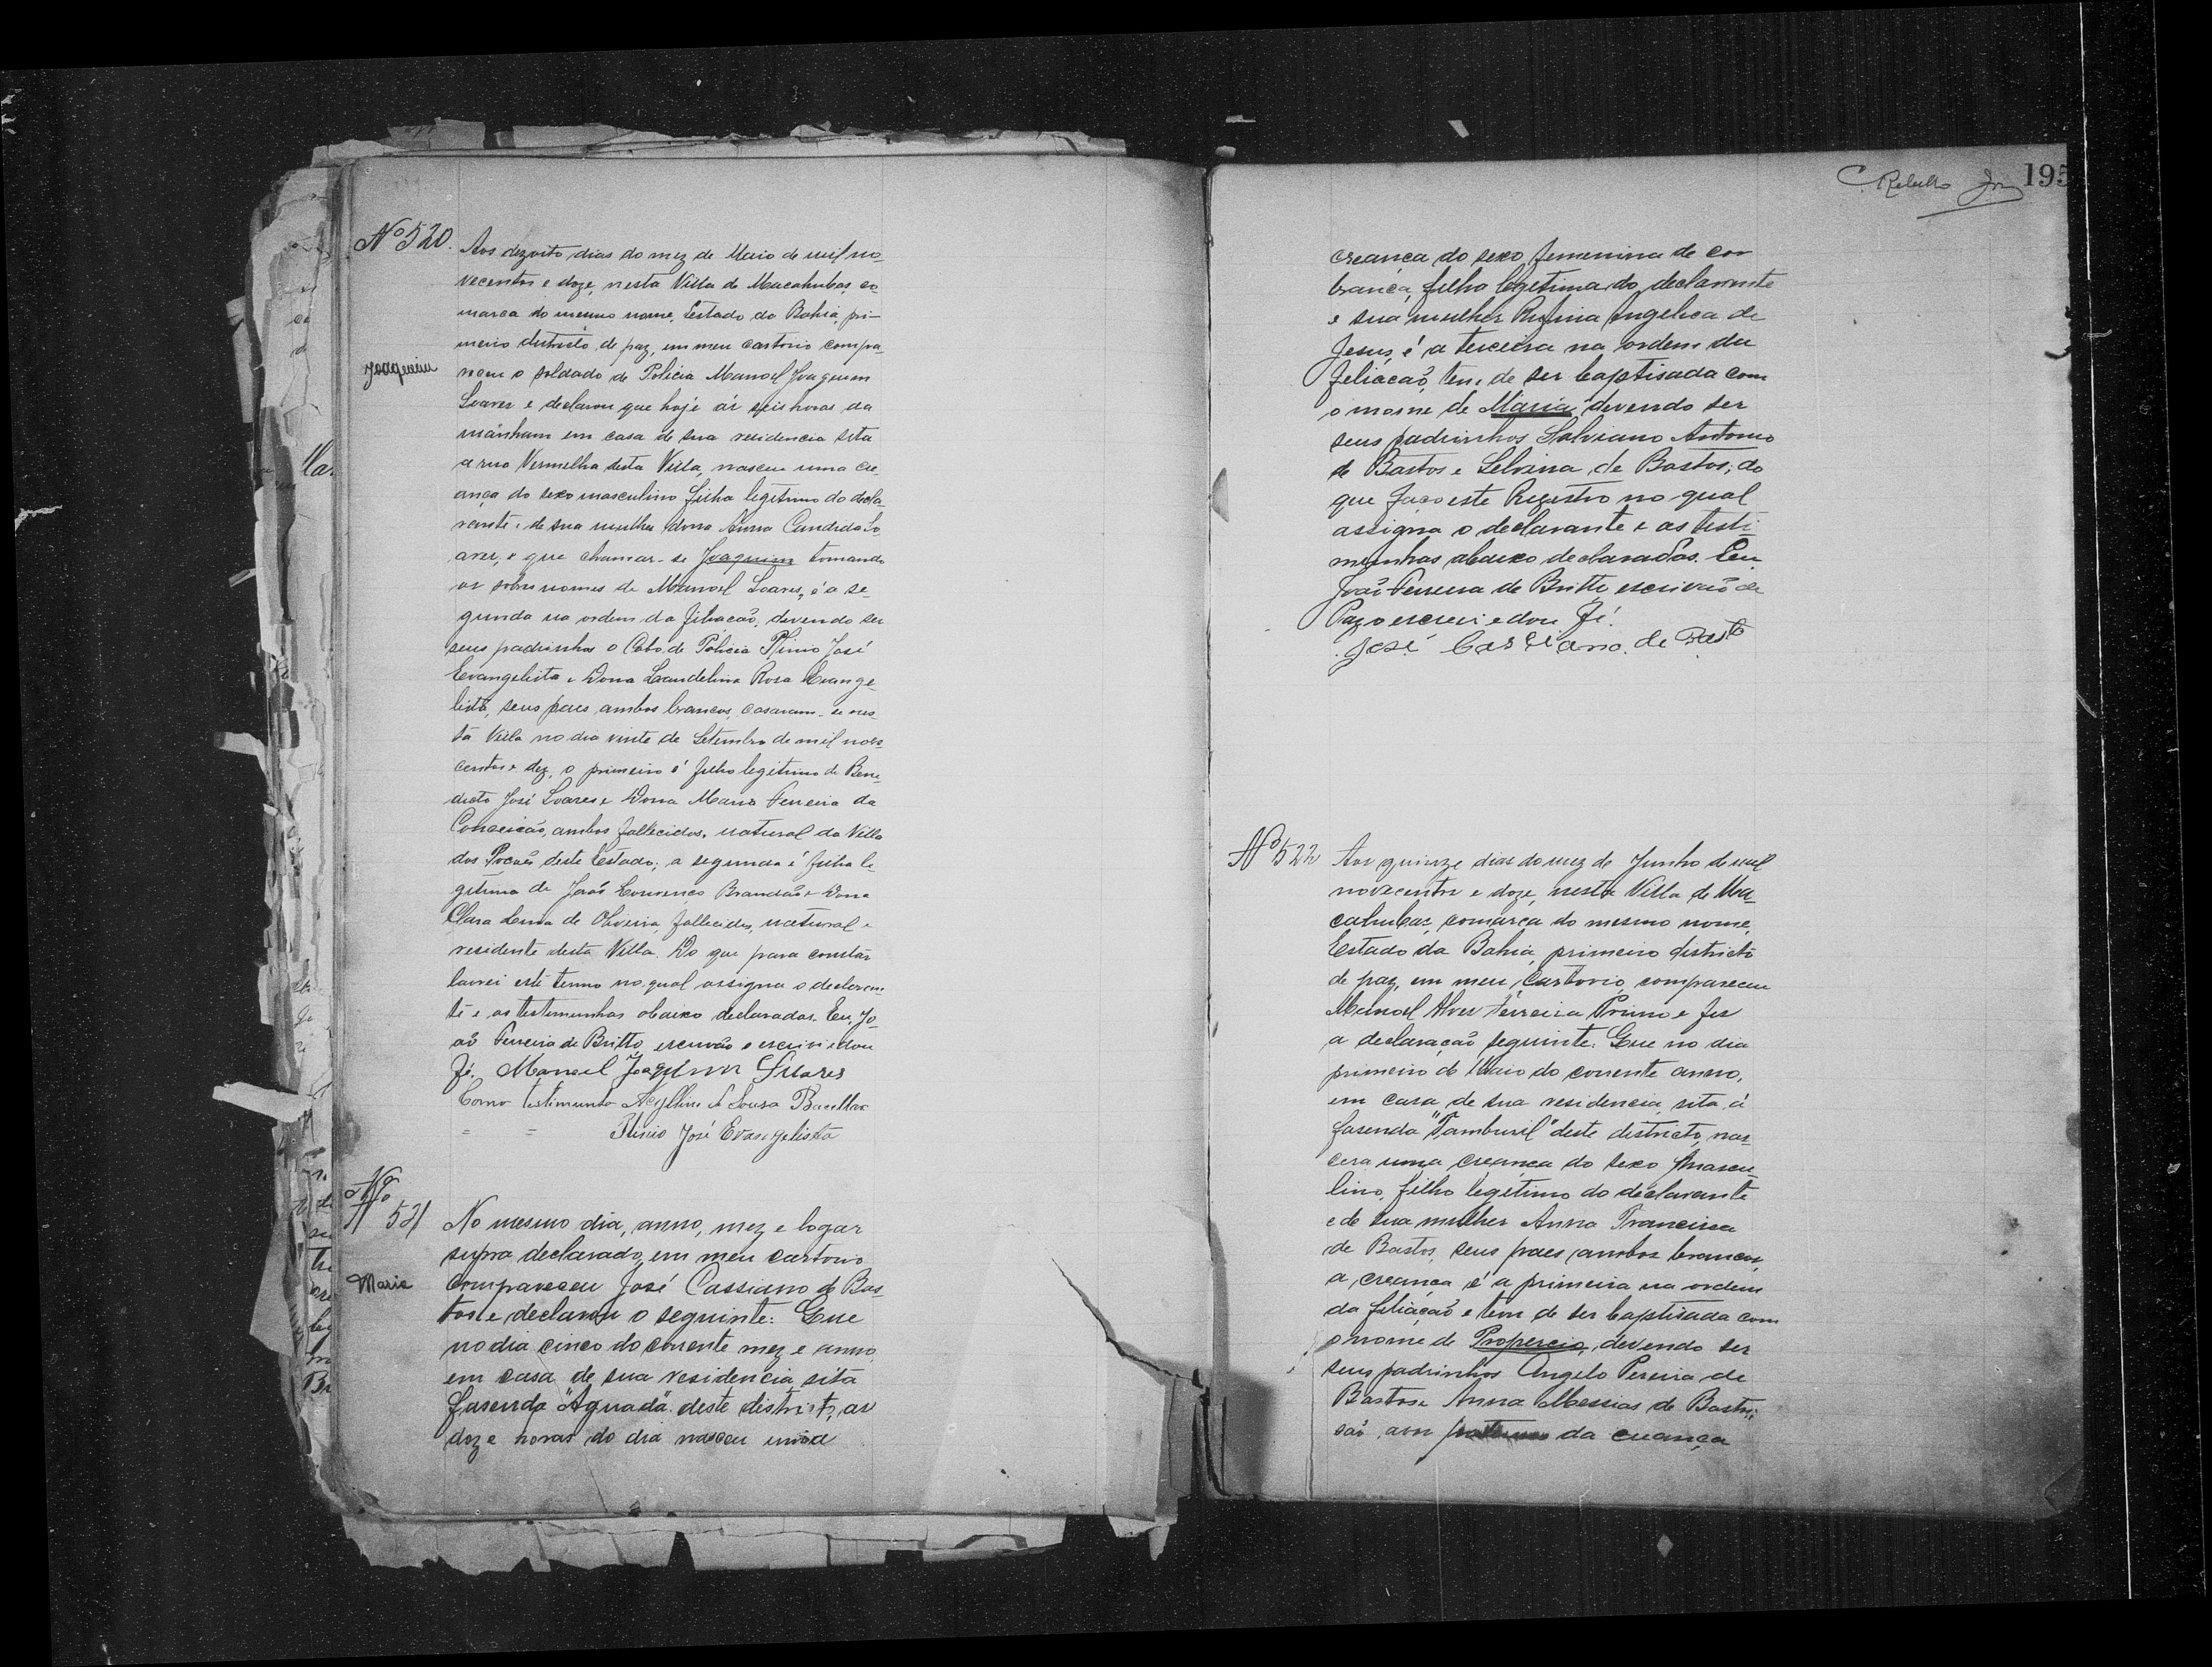 Nº 520.
Joaquim
Aos dezoito dias do mez de Maio de mil no-
vecentos e doze, nesta Villa de Macahubas, co-
marca do mesmo nome, Estado da Bahia, pri-
meiro districto de paz, em meu cartorio compa-
receu o soldado de Policia Manoel Joaquim
Soares e declarou que hoje ás seis horas da
manham em casa de sua residencia sita
a rua Vermelha desta Villa, nasceu uma cre-
ança do sexo masculino filho legitimo do decla-
rante e de sua mulher dona Anna Candida So-
ares, e que chamar-se Joaquim tomando
os sobre nomes de Manoel Soares, é a se-
gunda na ordem da filiacão, devendo ser
seus padrinhos o Cabo de Policia Plinio José
Evangelista e Dona Laudelina Rosa Evange-
lista, seus paes ambos brancos, casaram-se nes-
ta Villa no dia vinte de Setembro de mil nove-
centos e dez, o primeiro é filho legitimo de Bene-
dicto José Soares e Dona Maria Ferreira da
Conceicão, ambos fallecidos, natural da Villa
dos Pocões deste Estado; a segunda é filha le-
gitima de João Lourenço Brandão e Dona
Clara Lima de Oliveira, fallecidos, natural e
residente desta Villa. Do que para constar
lavrei este termo no qual assigna o declaran-
te e as testemunhas abaixo declaradas. Eu, Jo-
ão Ferreira de Britto, escrivão o escrivi e dou
fé. Manoel Joaquim Suares
Como testimunha de Sousa Bacellar
= = Plinio José Evangelista
Nº 521
Maria
No mesmo dia, anno, mez e logar
supra declarado, em meu cartorio
compareceu José Cassiano de Bas-
tos e declarou o seguinte: Que
no dia cinco do corrente mez e anno,
em casa de sua residencia sita
fasenda "Aguada" deste districto, as
doze horas do dia nasceu uma
C. Rebello 195
creança do sexo femenina de cor
branca, filha legitima do declarante
e sua mulher Rufina Angelica de
Jesus, é a terceira na ordem da
filiacaõ, tem de ser baptisada com
o nome de Maria devendo ser
seus padrinhos Salviano Antonio
de Bastos e Selvina de Bastos; do
que faço este Registro no qual
assigna o declarante e as testi-
munhas abaixo declaradas. Eu
João Ferreira de Britto, escrivão de
Paz o escrevi e dou fé.
José Casciano de Basto
Nº 522
Aos quinze dias do mez de Junho de mil
novecentos e doze, nesta Villa de Ma-
cahubas, comarca do mesmo nome,
Estado da Bahia, primeiro districto
de paz, em meu cartorio, compareceu
Manoel Alves Ferreira Primo e fez
a declaração seguinte: Que no dia
primeiro de Maio do corrente anno,
em casa de sua residencia, sita á
fasenda "Tamburil" deste districto, nas-
cera uma creança do sexo mascu-
lino, filho legitimo do declarante
e de sua mulher Anna Francisca
de Bastos, seus paes ambos brancos,
a creança é a primeira na ordem
da filiação e tem de ser baptisada com
o nome de Propercio, devendo ser
seus padrinhos Angelo Pereira de
Bastos e Anna Messias de Bastos,
são avos da creança